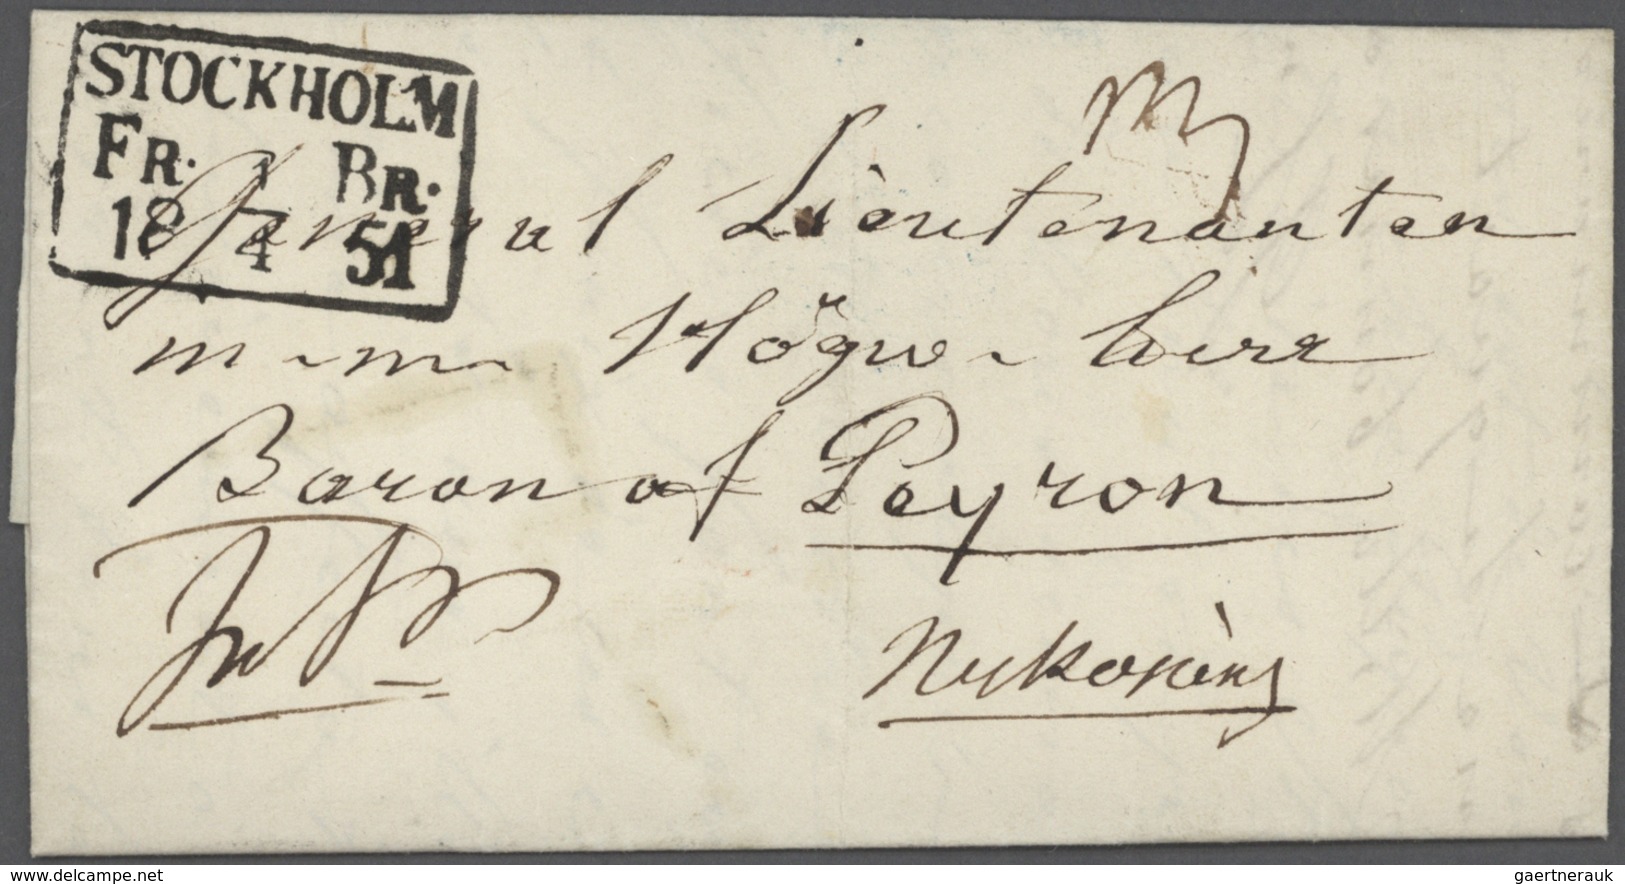 STOCKHOLM
FR. BR.
18 7/4 51
General Lieutenanten
m. m. Högw. Herr
Baron af Peyron
Nyköping
www.delcampe.net
gaertnerauk